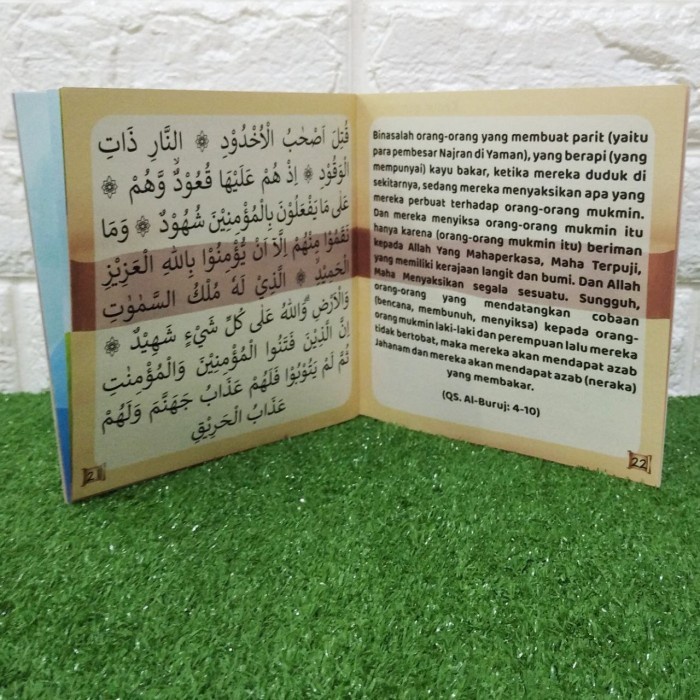 قُتِلَ اَصْحٰبُ الْاُخْدُوْدِ ۞ النَّارِ ذَاتِ
الْوَقُوْدِ ۞ اِذْ هُمْ عَلَيْهَا قُعُوْدٌۙ وَّهُمْ ۞
عَلٰى مَا يَفْعَلُوْنَ بِالْمُؤْمِنِيْنَ شُهُوْدٌ ۞ وَمَا
نَقَمُوْا مِنْهُمْ اِلَّآ اَنْ يُّؤْمِنُوْا بِاللّٰهِ الْعَزِيْزِ
الْحَمِيْدِۙ ۞ الَّذِيْ لَهٗ مُلْكُ السَّمٰوٰتِ
وَالْاَرْضِۗ وَاللّٰهُ عَلٰى كُلِّ شَيْءٍ شَهِيْدٌ ۞
اِنَّ الَّذِيْنَ فَتَنُوا الْمُؤْمِنِيْنَ وَالْمُؤْمِنٰتِ
ثُمَّ لَمْ يَتُوْبُوْا فَلَهُمْ عَذَابُ جَهَنَّمَ وَلَهُمْ
عَذَابُ الْحَرِيْقِ
Binasalah orang-orang yang membuat parit (yaitu
para pembesar Najran di Yaman), yang berapi (yang
mempunyai) kayu bakar, ketika mereka duduk di
sekitarnya, sedang mereka menyaksikan apa yang
mereka perbuat terhadap orang-orang mukmin.
Dan mereka menyiksa orang-orang mukmin itu
hanya karena (orang-orang mukmin itu) beriman
kepada Allah Yang Mahaperkasa, Maha Terpuji,
yang memiliki kerajaan langit dan bumi. Dan Allah
Maha Menyaksikan segala sesuatu. Sungguh,
orang-orang yang mendatangkan cobaan
(bencana, membunuh, menyiksa) kepada orang-
orang mukmin laki-laki dan perempuan lalu mereka
tidak bertobat, maka mereka akan mendapat azab
Jahanam dan mereka akan mendapat azab (neraka)
yang membakar.
(QS. Al-Buruj: 4-10)
22